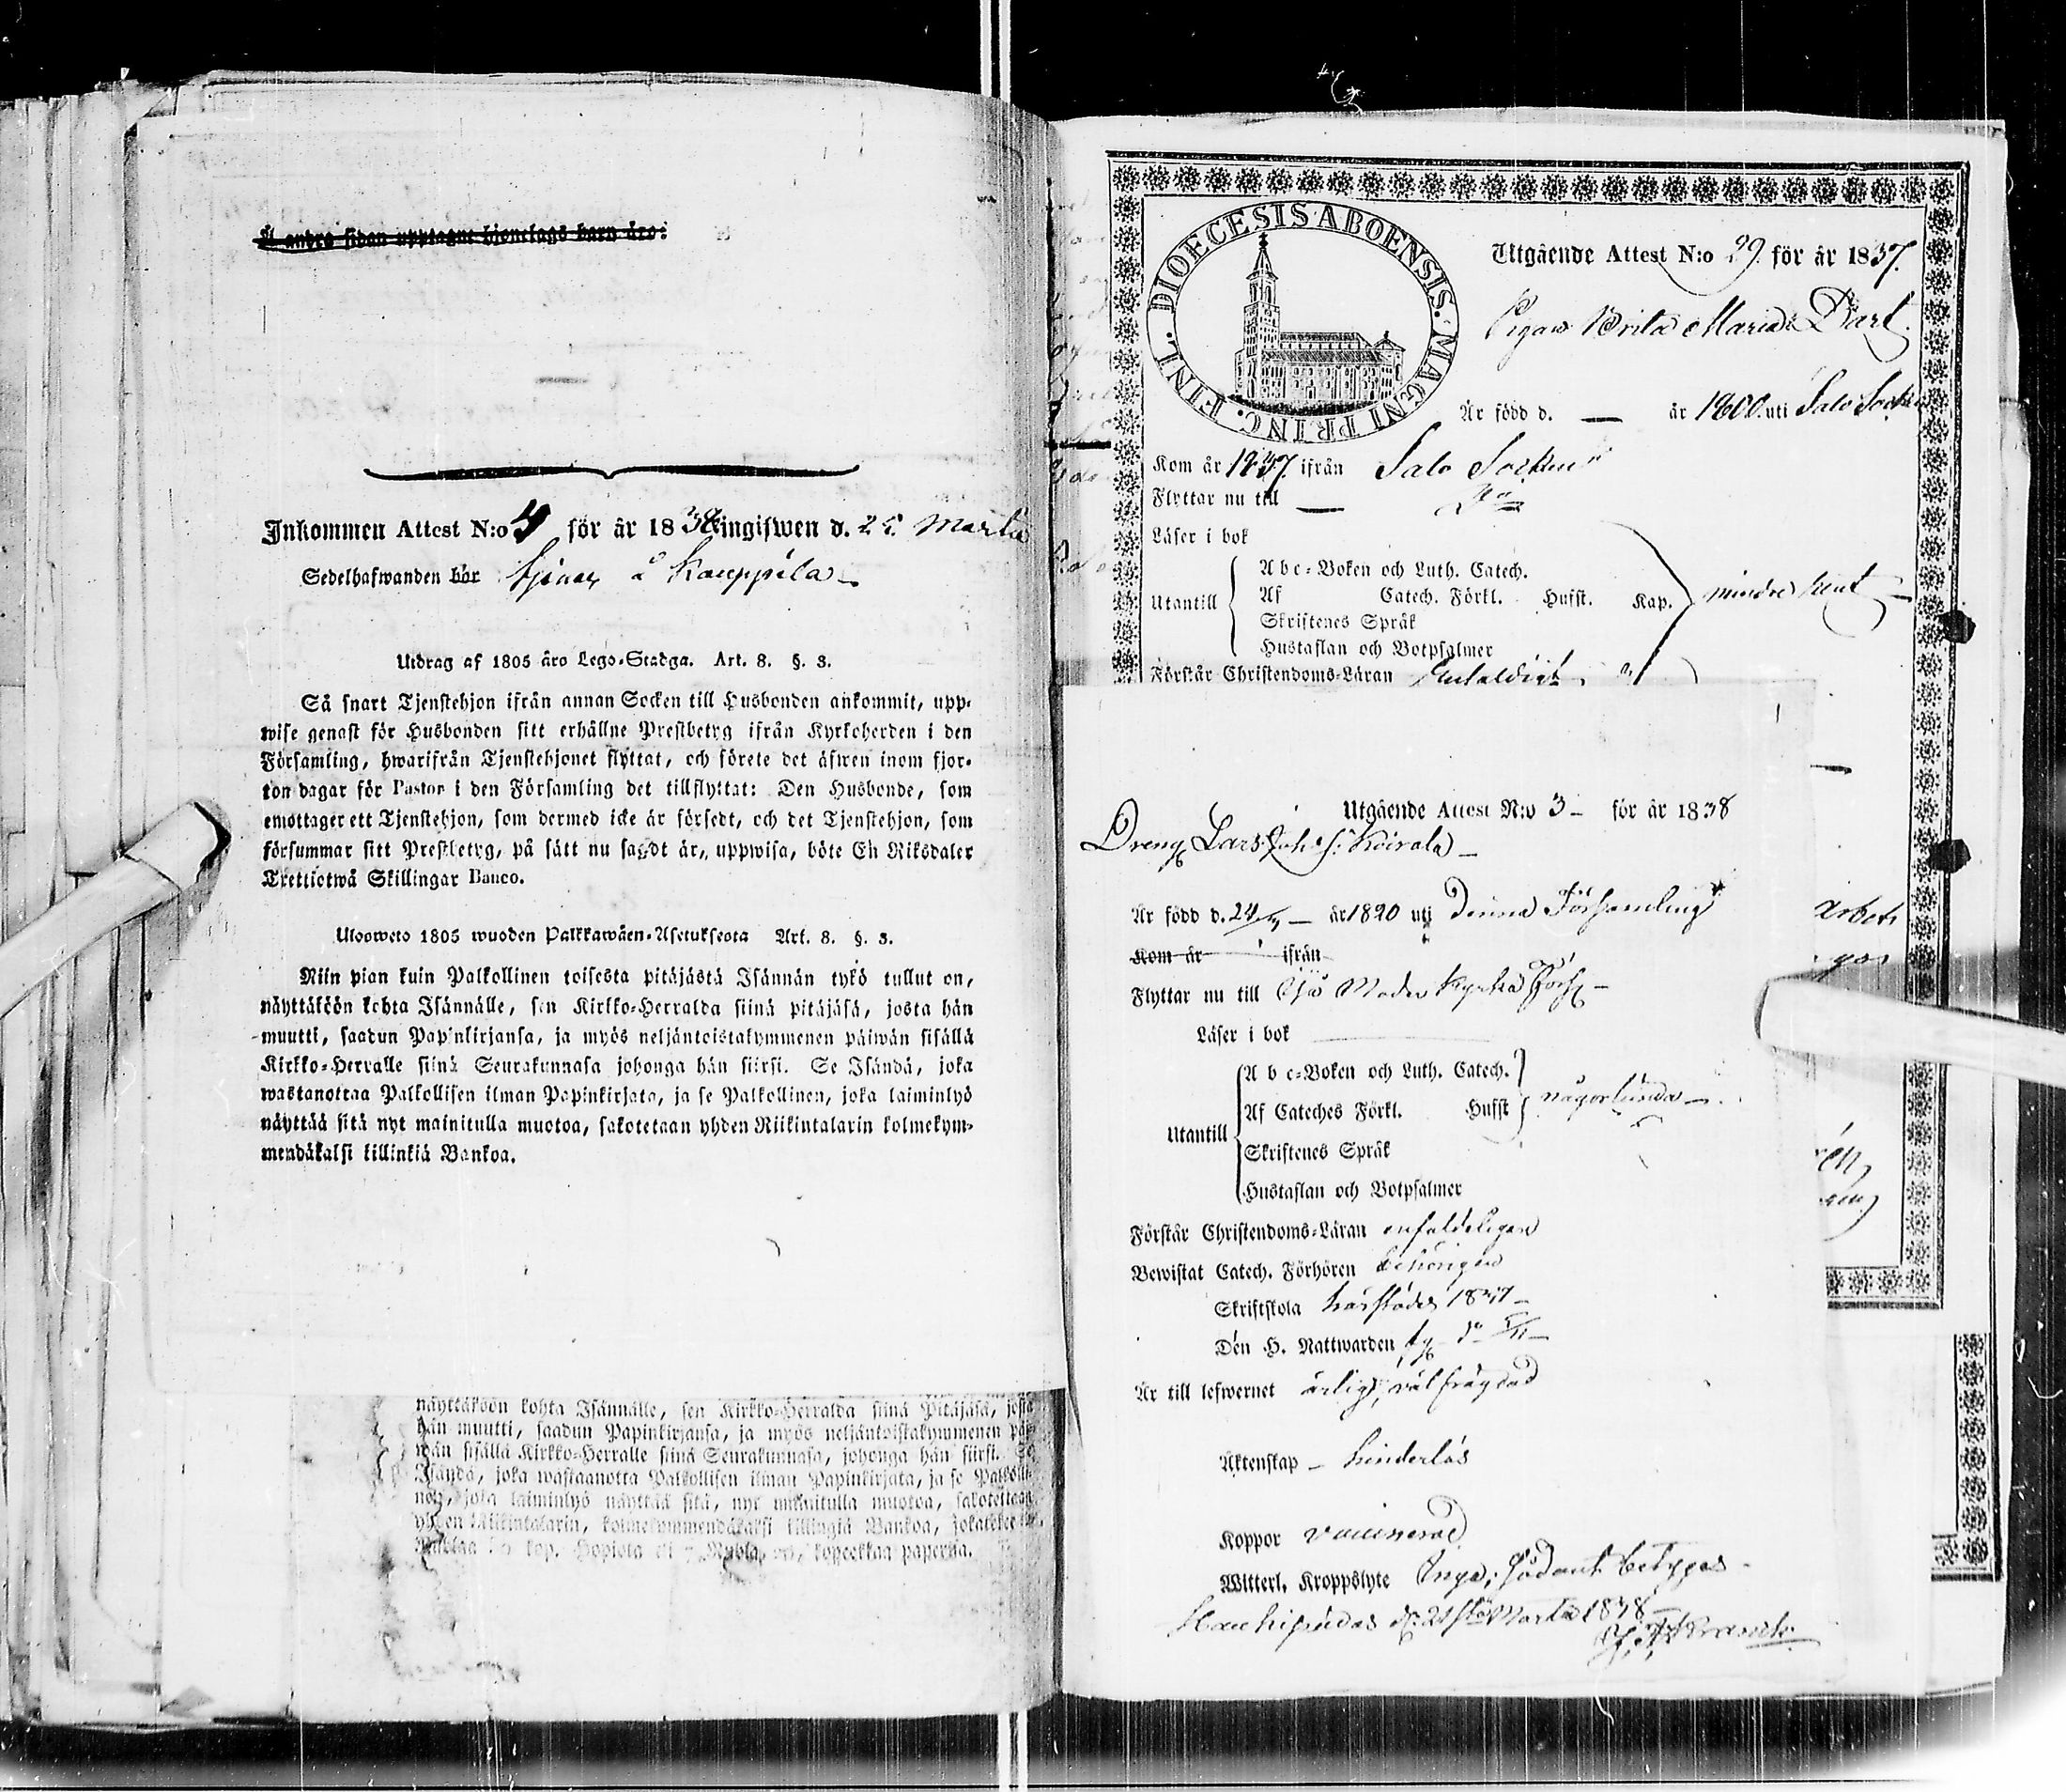 På andra sidan upptagne hjonelags barn äro:
Inkommen Attest N:o 4 för år 1838 ingifwen d. 25 Martii
Sedelhafwanden bör tjenar å Kauppila
Utdrag af 1805 års Lego-Stadga. Art. 8. §. 3.
Så snart Tjenstehjon ifrån annan Socken till Husbonden ankommit, upp-
wise genast för Husbonden sitt erhållne Prestbetyg ifrån Kyrkoherden i den
Församling, hwarifrån Tjenstehjonet flyttat, och förete det äfwen inom fjor-
ton dagar för Pastor i den Församling det tillflyttat: Den Husbonde, som
emottager ett Tjenstehjon, som dermed icke är försedt, och det Tjenstehjon, som
försummar sitt Prestbetyg, på sätt nu sagdt är, uppwisa, böte En Riksdaler
Trettiotwå Skillingar Banco.
Uloosweto 1805 wuoden Palkkawäen-Asetuksesta Art. 8. §. 3.
Niin pian kuin Palkollinen toisesta pitäjästä Isännän tykö tullut on,
näyttäköön kohta Isännälle, sen Kirkko-Herralda siinä pitäjäsä, josta hän
muutti, saadun Papinkirjansa, ja myös neljäntoistakymmenen päiwän sisällä
Kirkko-Herralle siinä Seurakunnasa johonga hän siirsi. Se Isändä, joka
wastanottaa Palkollisen ilman Papinkirjata, ja se Palkollinen, joka laiminlyö
näyttää sitä nyt mainitulla muotoa, sakotetaan yhden Riikintalarin kolmekym-
mendäkaksi killinkiä Bankoa.
näyttäköön kohta Isännälle, sen Kirkko-Herralda siinä Pitäjäsä, josta
hän muutti, saadun Papinkirjansa, ja myös neljäntoistakymmenen päi-
wän sisällä Kirkko-Herralle siinä Seurakunnasa, johonga hän siirsi. Se
Isändä, joka wastaanotta Palkollisen ilman Papinkirjata, ja se Palkolli-
nen, joka laiminlyö näyttää sitä, nyt mainitulla muotoa, sakotetaan
yhden Riikintalarin, kolmekymmendäkaksi killingiä Bankoa,
kop. Hopiota eli Rubla kopeekkaa paperisa.
DIOECESIS ABOENSIS. MAGNI PRINC. FINL.
Utgående Attest N:o 29 för år 1837.
Pigan Brita Maria Dart
Är född d. — år 1800 uti Salo Socken
Kom år 1837 ifrån Salo Socken
Flyttar nu till — Do
Läser i bok
Utantill
Abc-Boken och Luth. Catech.
Af Catech. Förkl. Hufst. Kap. mindre kent
Skriftenes Språk
Hustaflan och Botpsalmer
Förstår Christendoms-Läran Enfaldigt
Utgående Attest N:o 3 – för år 1838
Dreng Lars Joh. s. Koirala –
Är född d. 24 år 1820 uti denna Församling
Kom år ifrån
Flyttar nu till Ijo Moder Kyrka Förs
Läser i bok
Utantill
A b c-Boken och Luth. Catech.
Af Cateches Förkl. Hufst någorlunda –
Skriftenes Språk
Hustaflan och Botpsalmer
Förstår Christendoms-Läran enfaldeligen
Bewistat Catech. Förhören behörigen
Skriftskola härstädes 1837 –
Den H. Nattwarden
Är till lefwernet ärlig, välfrägdad
Äktenskap – hinderlös
Koppor vaccinerad
Witterl. Kroppslyte Inga; sådant betygas –
Haukipudas d. 21 Martii 1838
arbets